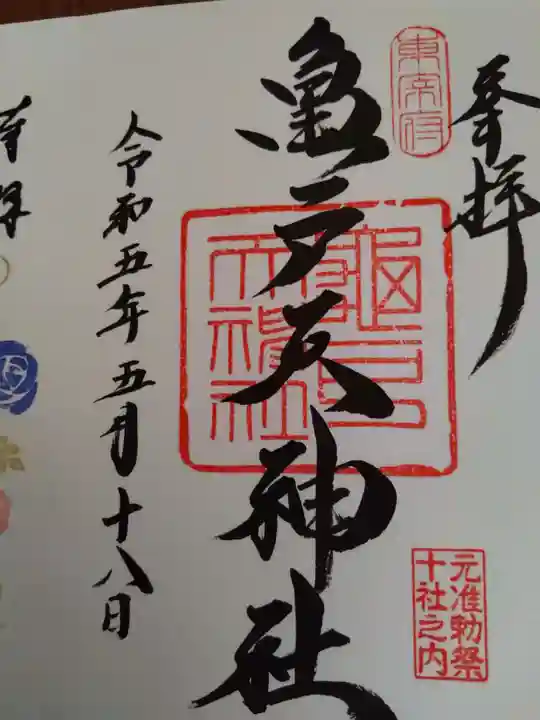 奉拝
東宰府
亀戸天神社
亀戸天神社
元准勅祭
十社之内
令和五年五月十八日